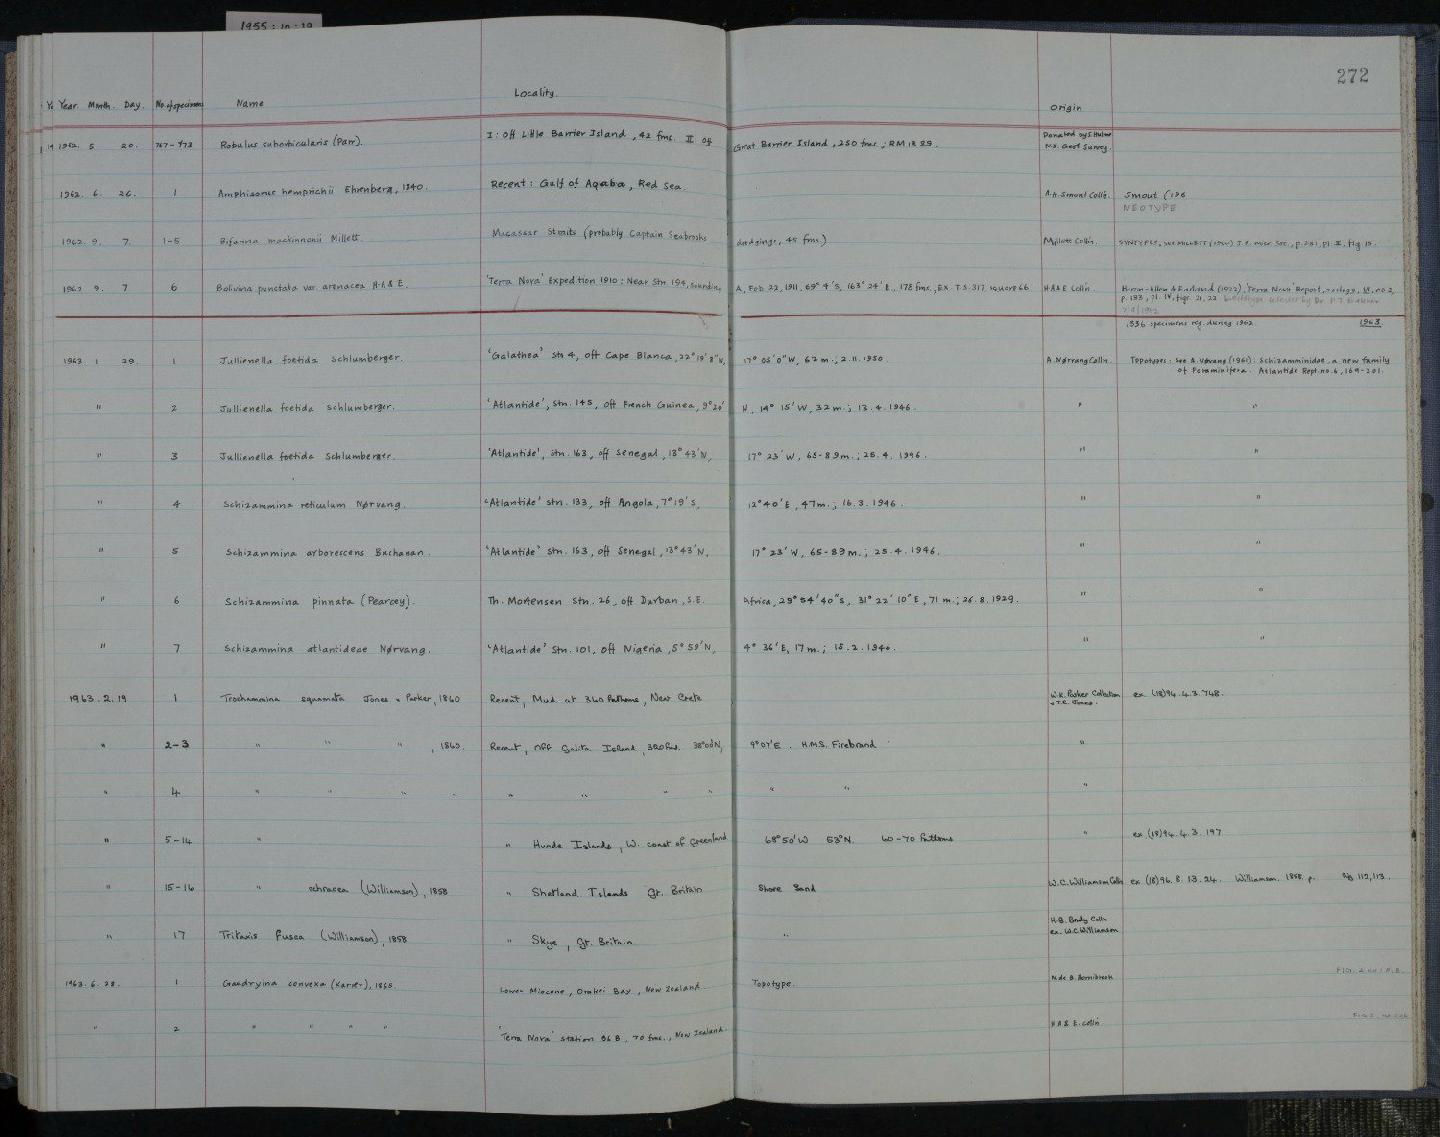 1955.10.19
272
Year Month. Day. No. of specimens Name Locality. Origin
1962. 5 20. 767-773 Robulus suborbicularis (Parr). I: Off Little Barrier Island, 42 fms. II Off Great Barrier Island, 250 fms.; RM 1229. Donated by S. Hulme
N.Z. Geol Survey.
1962. 6. 26. 1 Amphisorus hemprichii Ehrenberg, 1840. Recent: Gulf of Aqaba, Red Sea. A.H. Smout Colln. Smout (196
NEOTYPE
1962. 9. 7. 1-5 Bifarina mackinnonii Millett. Macassar Straits (probably Captain Seabrooks dredgings, 45 fms.) Millett Colln. SYNTYPES, see MILLETT (1900) J. R. micr Soc., p.281, pl II, fig 15.
1962 9. 7 6 Bolivina punctata var. arenacea H-A & E. 'Terra Nova' Expedition 1910: Near Stn. 194, Sounding A, Feb 22, 1911, 69° 4' S, 163° 24' E., 178 fms., EX. T.S. 317 square 66 H-A&E Colln. Heron-Allen & Earland (1922), 'Terra Nova' Report, zoology, VI, no 2,
p. 133, pl. IV, figs. 21, 22
1336 specimens reg. during 1962. 1963.
1963 1 29. 1 Jullienella foetida Schlumberger. 'Galathea' stn 4, off Cape Blanca, 22° 19' 8"N, 17° 05' 0"W, 62 m.; 2.11.1950. A. Nørvang Colln. Topotypes: see A. Nørvang (1961): Schizamminidae a new family
of Foraminifera. Atlantide Rept. no. 6, 169-201.
" 2 Jullienella foetida Schlumberger. 'Atlantide', stn. 145, off French Guinea, 9° 20' N, 14° 15' W, 32 m.; 13.4.1946. " "
" 3 Jullienella foetida Schlumberger. 'Atlantide', stn. 163, off Senegal, 13° 43' N, 17° 23' W, 65-89 m.; 25.4.1946. " "
" 4 Schizammina reticulum Nørvang. 'Atlantide' stn. 133, off Angola, 7° 19' S, 12° 40' E, 47 m.; 16.3.1946. " "
" 5 Schizammina arborescens Buchanan. 'Atlantide' stn. 163, off Senegal, 13° 43' N, 17° 23' W, 65-89 m.; 25.4.1946. " "
" 6 Schizammina pinnata (Pearcey). Th. Mortensen stn. 26, off Durban, S.E. Africa, 29° 54' 40"S, 31° 22' 10"E, 71 m.; 26.8.1929. " "
" 7 Schizammina atlantideae Nørvang. 'Atlantide' stn. 101, off Nigeria, 5° 59' N, 4° 36' E, 17 m.; 15.2.1946. " "
1963.2.19 1 Trochammina squamata Jones & Parker, 1860 Recent, Mud at 360 Fathoms, Near Crete W.K. Parker Collection
& T.R. Jones. ex (18)94.4.3.748.
" 2-3 " " " , 1860. Recent, off Galita Island, 320 fms. 38°00'N, 9°07'E. H.M.S. Firebrand "
" 4 " " " " " " " " " " "
" 5-14 " " Hunde Islands, W. coast of Greenland 68°50'W 53°N. 60-70 fathoms " ex (18)94.4.3.197
" 15-16 " ochracea (Williamson), 1858 " Shetland Islands Gt. Britain Shore Sand W.C. Williamson Colln ex (18)96.8.13.24. Williamson. 1858. p. fig 112, 113.
" 17 Tritaxis fusca (Williamson), 1858 " Skye, Gt. Britain " H.B. Brady Colln
ex. W.C. Williamson
1963.6.28. 1 Gaudryina convexa (Karrer), 1865. Lower Miocene, Orakei Bay, New Zealand. Topotype. N. de B. Hornibrook
" 2 " " " " 'Terra Nova' station 96 B, 70 fms., New Zealand. H A & E. colln